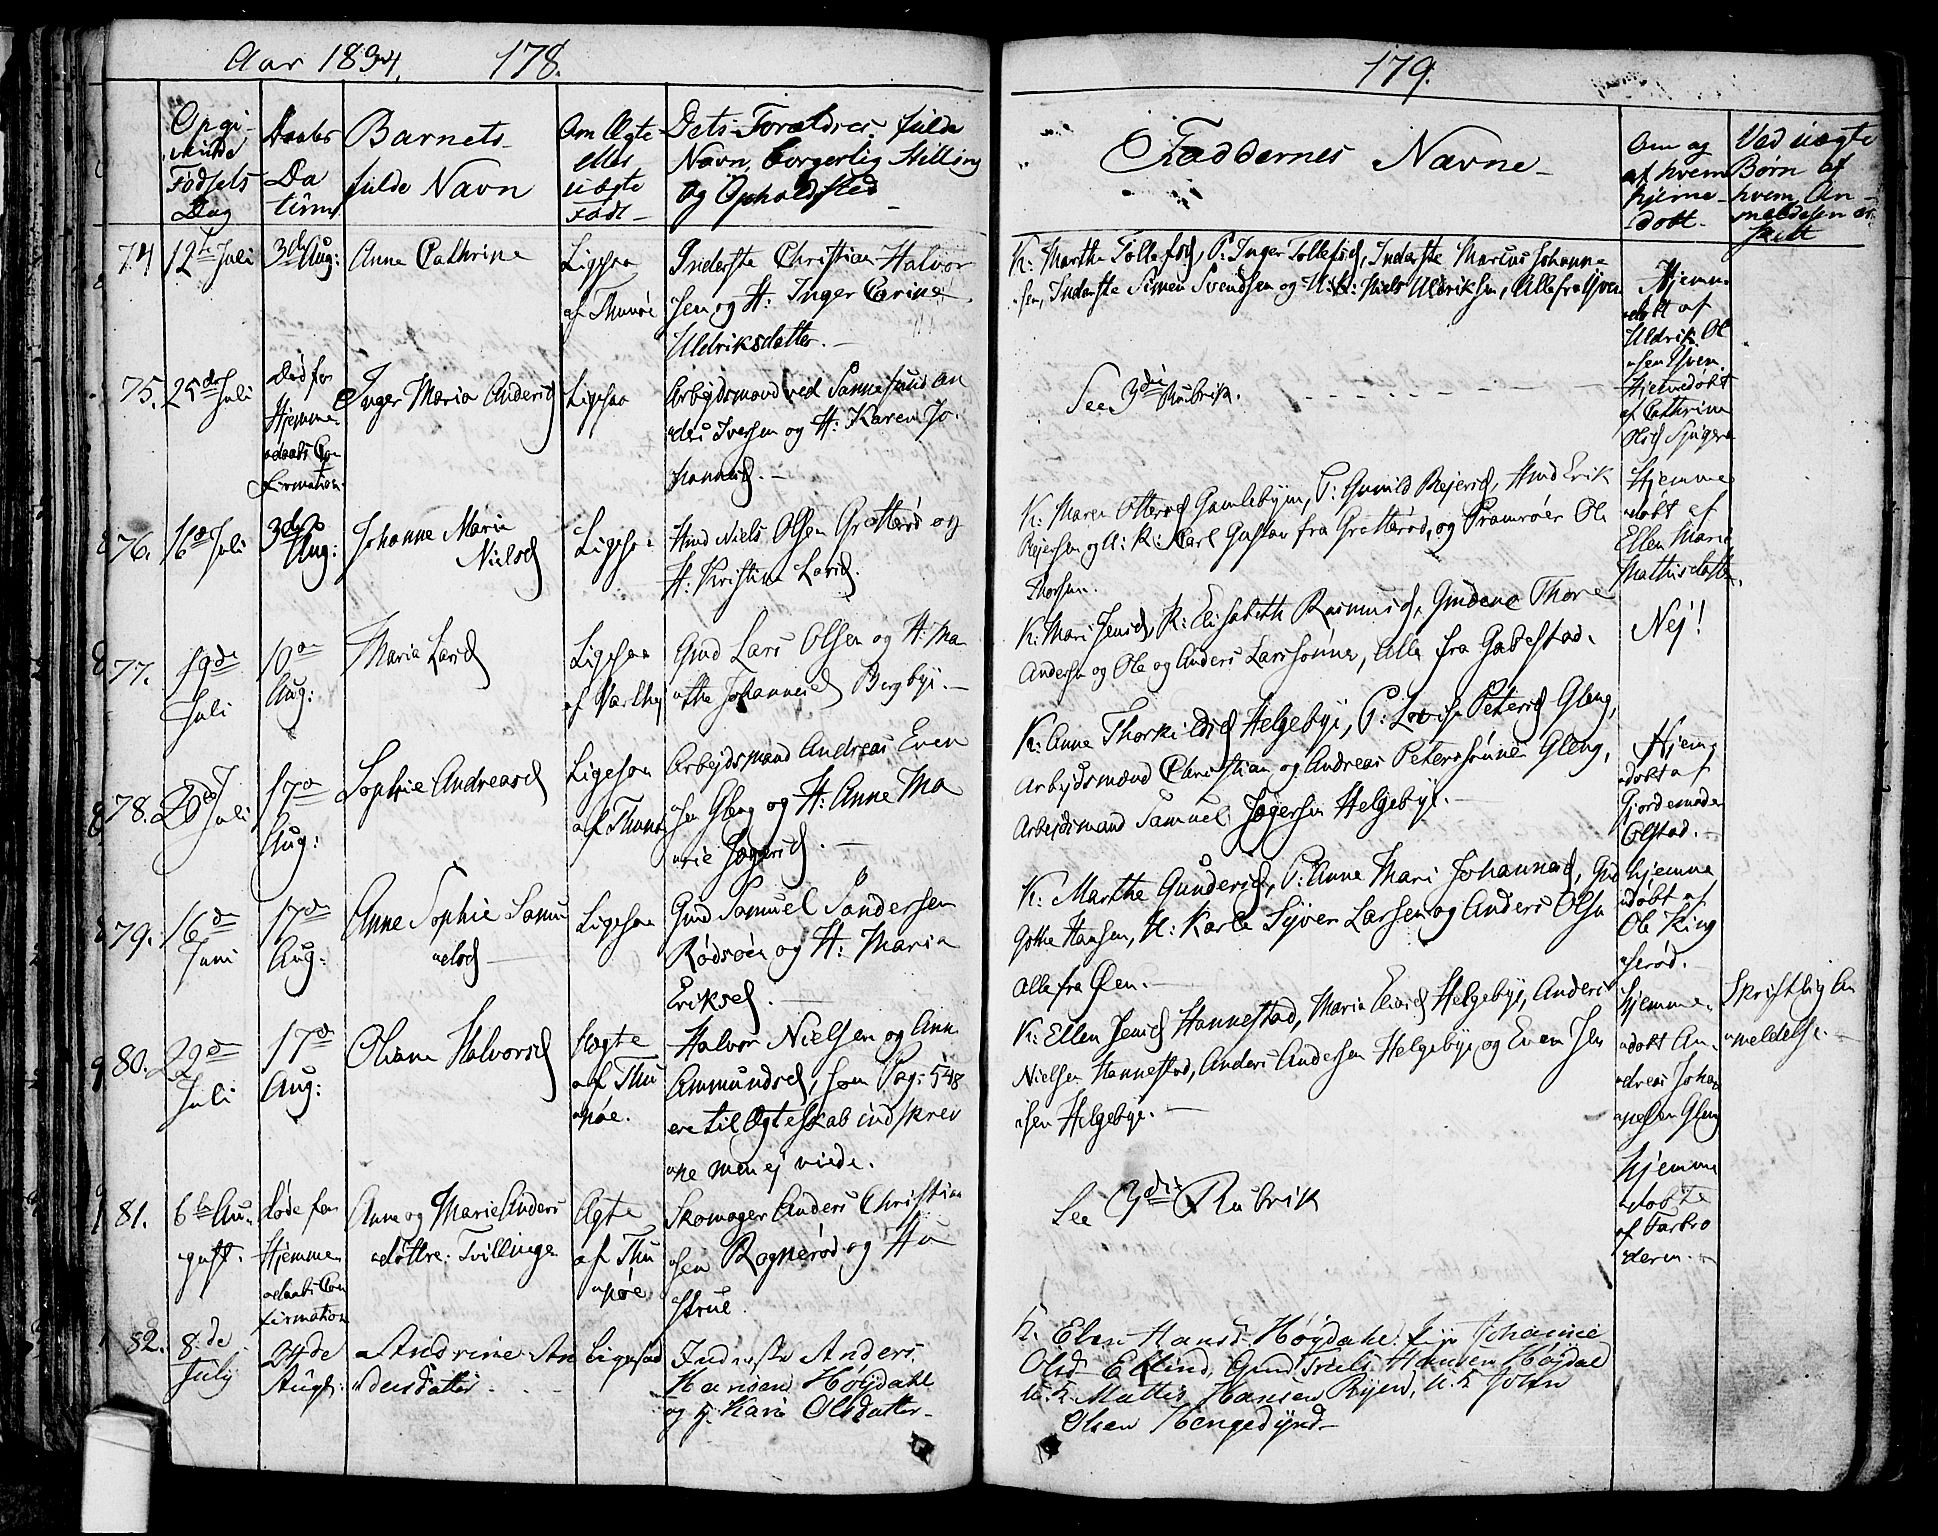 Aar 1834. 178.
Opgi-
vende
Fødsels
Dag
Daabs
Da
tum
Barnets
fulde Navn
Om Ægte
eller
uægte
Født
Dets Forældres fulde
Navn, borgerlig Stilling
og Opholdsted
74 12te Juli
3die Aug:
Anne Cathrine
Ligesaa
af Thunøe
Inderste Christian Halvor
sen og H: Inger Carine
Uldriksdatter.
75. 25de Juli
Død før
Hjemme
daabs Con
firmation.
Inger Maria Andersd
Ligesaa
Arbejdsmand ved Sannesund An
ders Iversen og H: Karen Jo-
hannesd.
76. 16de Juli
3die Aug:
Johanne Marie
Nielsd
Ligesaa
Hmd Niels Olsen Gratterød og
H: Kristine Larsd.
77. 19de
Juli
10de
Aug:
Maria Larsd
Ligesaa
af Varthej
Gmd Lars Olsen og H: Ma
the Johannesd Bergbyе.
78. 20de Juli
17de
Aug:
Sophie Andreasd
Ligesaa
af Thunø
Arbejdsmand Andreas Even
sen Gleng og H: Anne Ma
rie Jøgersd.
79. 16de
Juni
17de
Aug:
Anne Sophie Samu
elsd
Ligesaa
Gmd Samuel Sandersen
Rødsøen og H: Maria
Eriksd.
80. 29de
Juli
17de
Aug:
Oliane Halvorsd
Uægte
af Thu
nøe.
Halvor Nielsen og Ann
Ammundsd, som Pag: 548
ere til Ægteskab indskrev
ne men ej viede.
81. 6te Au-
gust.
døde før
Hjemme
daabs Con
firmation
Anne og Marie Anders
døttre. Tvillinge
Ægte
af Thu
nøe.
Skomager Anders Christian
sen Rognerød og Hu
strue.
82. 8de
July
24de
Augt:
Andrine An
dersdatter
Ligesaa
Inderste Anders
Hansen Høydahl
og H. Kari Olsdatter
179.
Faddernes Navne
Om og
af hvem
hjemme-
døbt.
Ved uægte
Børn af
hvem An-
meldelsen er
skeet
K: Marthe Tollefsd, P: Inger Tollefsd, Inderste Marius Johanne
sen, Inderste Simen Svendsen og U:K: Niels Uldriksen, Alle fra Yven
Hjemme
døbt af
Uldrik Ol
sen Yven.
See 3die Rubrik.
Hjemmedøbt
af Cathrine
Olsd
K: Maren Ottersd Gamlebyen, P: Gunild Rejersd, Hmd Erik
Rejersen og U:K: Karl Gustav fra Gratterød, og Pramroer Ole
Thorsen.
Hjemme
døbt af
Ellen Marie
Mathisdatter.
K: Mari Jensd, K: Elisabeth Rasmusd, Gmdene Thore
Andersen og Ole og Anders Larssønner, Alle fra Gabestad.
Nej!
K: Anne Thorkildsd Helgebye, P: Lovise Petersd Gleng,
Arbejdsmænd Christian og Andreas Peterssønner Gleng,
Arbejdsmand Samuel Jøgersen Helgebye.
Hjem
døbt af
Gjordemoder
Olstad.
K: Marthe Gundersd, P: Anne Mari Johannesd, Gmd
Gothe Hansen, U: Karle Syver Larsen og Anders Olsen
Alle fra Øen.
hjemme
døbt af
Ole King
serød.
K: Ellen Jensd Hannestad, Maria Eliasd Helgebye, Anders
Nielsen Hannestad, Anders Andersen Helgebye og Even Jen
sen Helgebye.
hjemme
døbt An
dreas Johan
nesen Gleng
Skriftlig An
meldelse.
See 3die Rubrik
hjemme
døbte
af Farbro
deren.
K. Elen Hansd Høydahl, Johanne
Olsd Eklind, Gmd Hansen Høydal
U.K. Mattis Hansen Ryen, U.K John
Olsen Hengedynd